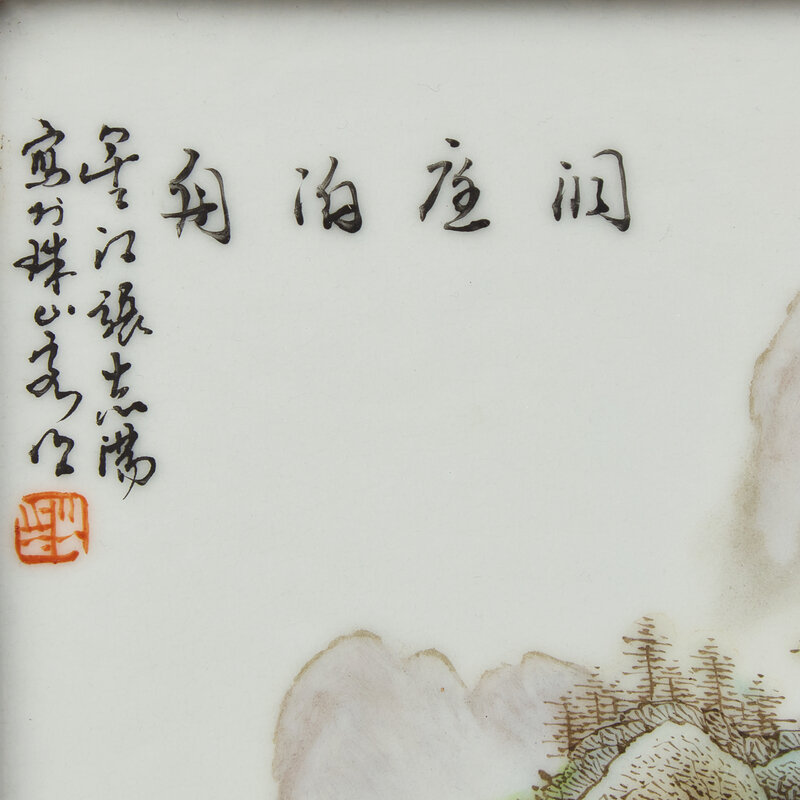 洞庭泊舟
星江張志湯
寫於珠山客次